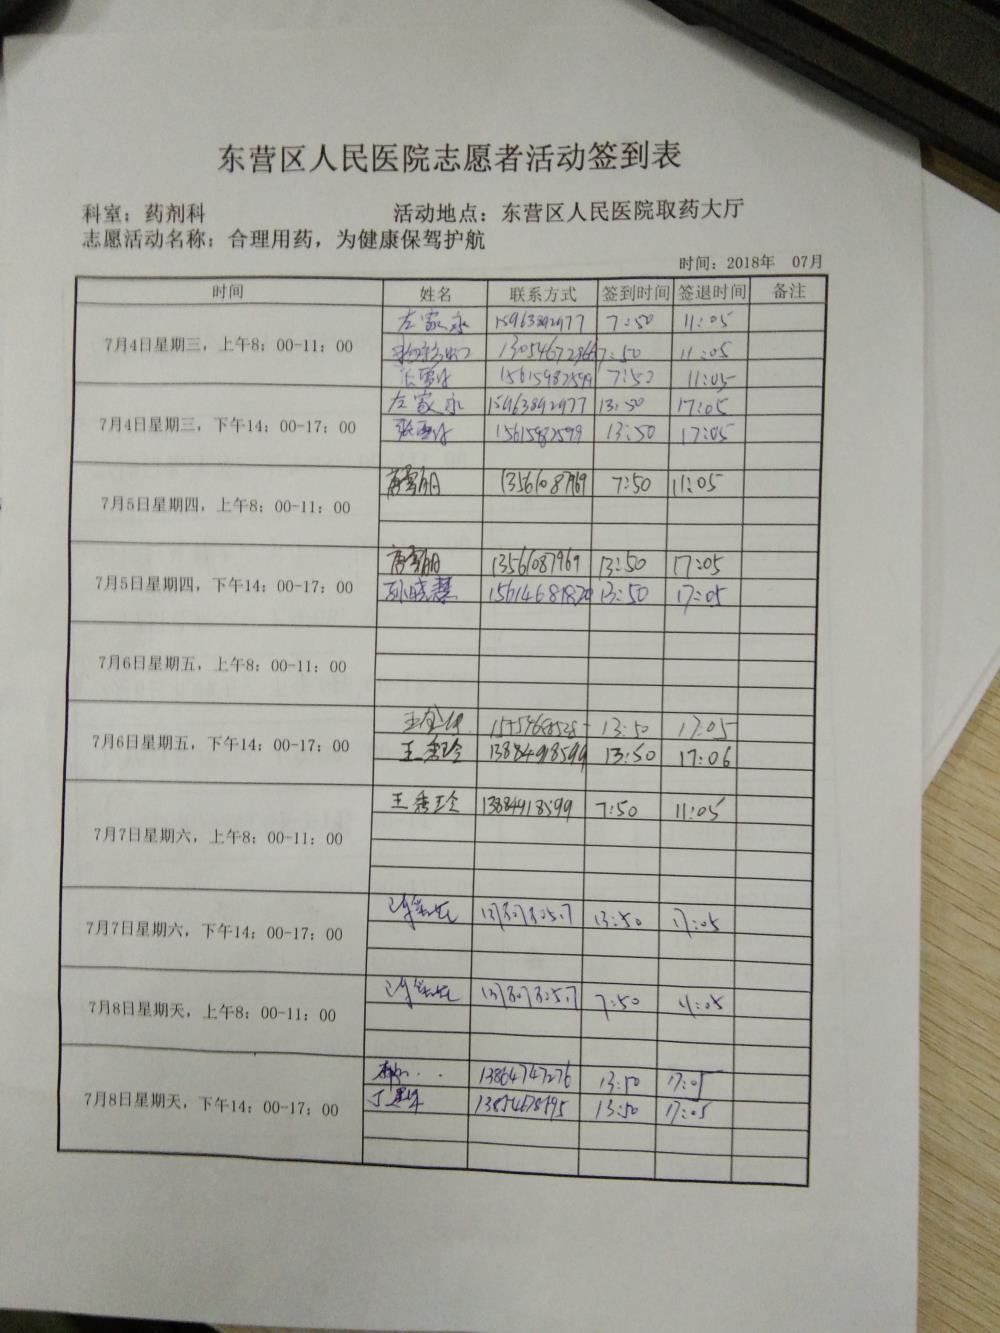 东营区人民医院志愿者活动签到表
科室：药剂科 活动地点：东营区人民医院取药大厅
志愿活动名称：合理用药，为健康保驾护航
时间：2018年 07月
时间 姓名 联系方式 签到时间 签退时间 备注
7月4日星期三，上午8：00-11：00
左家永 15963892977 7:50 11:05
7:50 11:05
15615987599 7:50 11:05
7月4日星期三，下午14：00-17：00
左家永 15963892977 13:50 17:05
13:50 17:05
7月5日星期四，上午8：00-11：00
7:50 11:05
7月5日星期四，下午14：00-17：00
13561087969 13:50 17:05
孙晓慧 13:50 17:05
7月6日星期五，上午8：00-11：00
7月6日星期五，下午14：00-17：00
13:50 17:05
王秀玲 13884918599 13:50 17:06
7月7日星期六，上午8：00-11：00
王秀玲 13884918599 7:50 11:05
7月7日星期六，下午14：00-17：00
13:50 17:05
7月8日星期天，上午8：00-11：00
7:50 11:05
7月8日星期天，下午14：00-17：00
13864747276 13:50 17:05
13:50 17:05